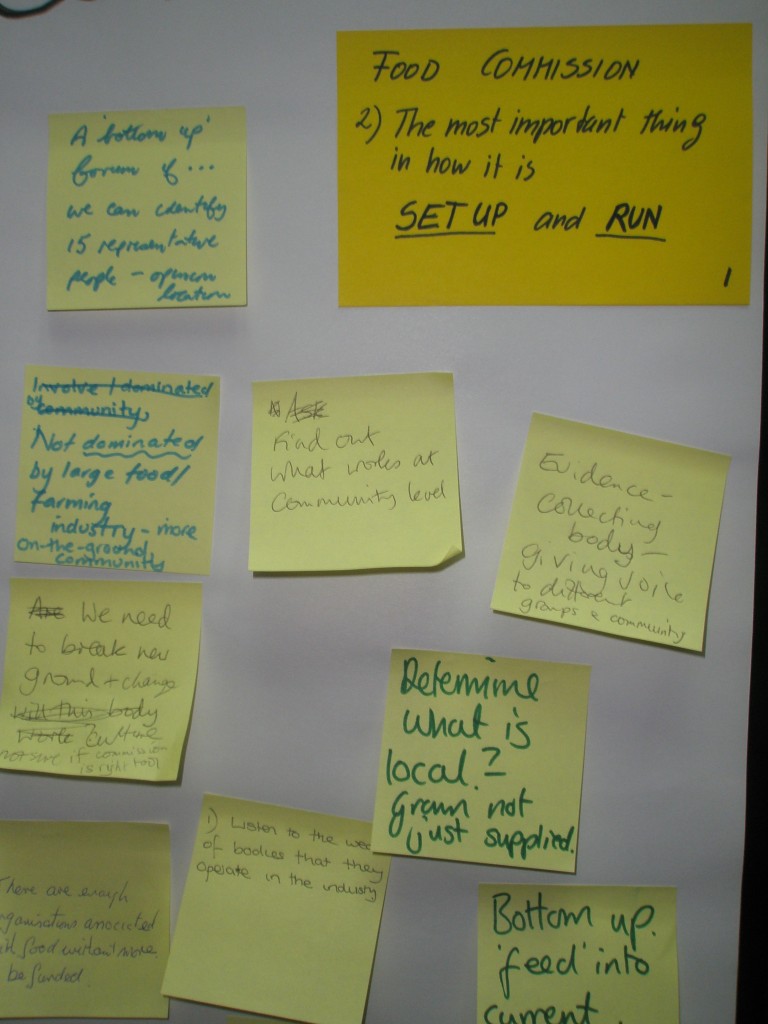 FOOD COMMISSION
2) The most important thing
in how it is
SET UP and RUN
1
A 'bottom up'
forum of ...
we can identify
15 representative
people - opinion
location
Involve / dominated
by community,
Not dominated
by large food/
farming
industry - more
on-the-ground
community
Ask
Find out
what works at
community level
Evidence-
collecting
body-
giving voice
to different
groups & community
Are We need
to break new
ground + change
will this body
work culture
not sure if commission
is right tool
Determine
what is
local?
Grown not
just supplied.
1) Listen to the
of bodies that they
operate in the industry
There are enough
organisations associated
with food without more
be funded.
Bottom up.
'feed' into
current